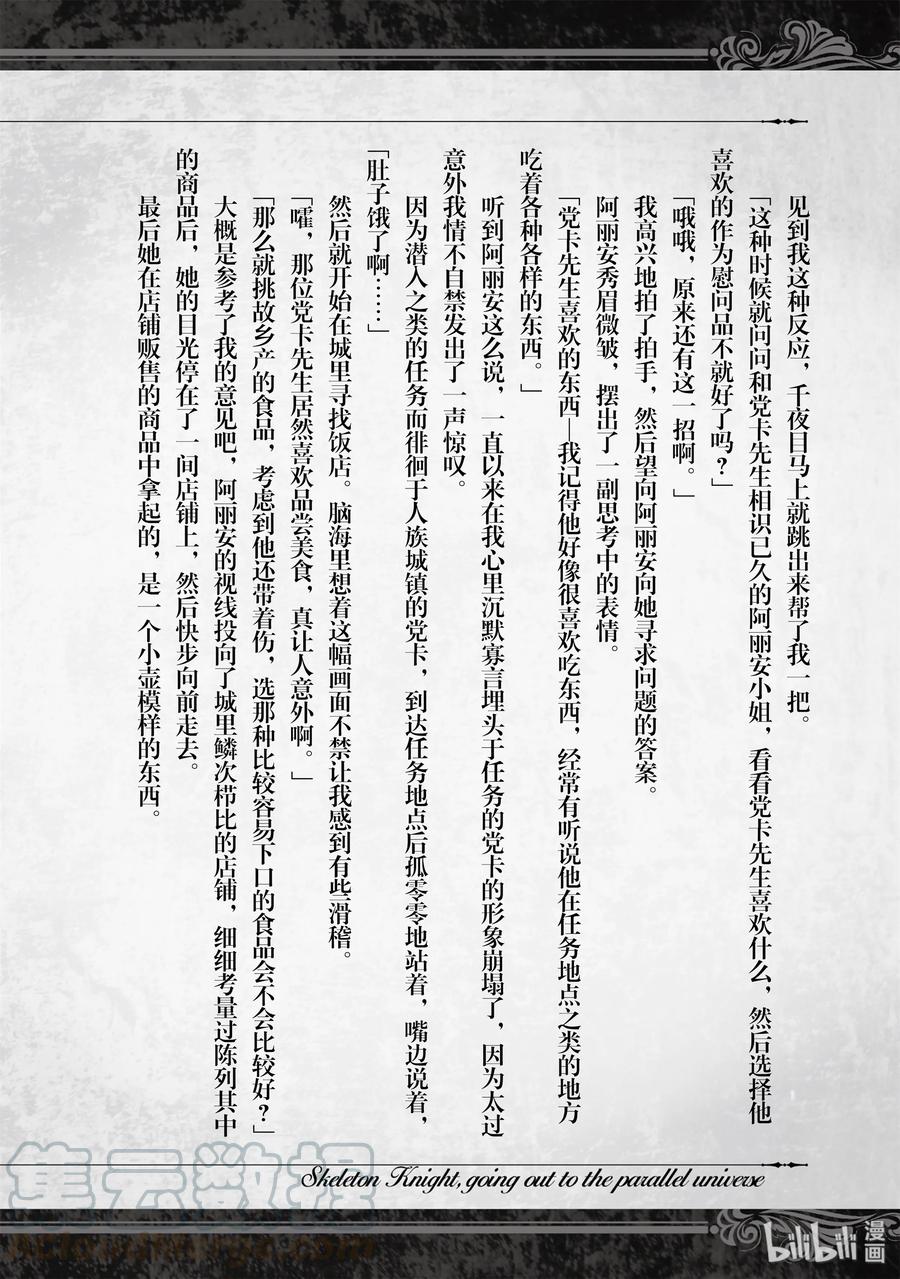 见到我这种反应，千夜目马上就跳出来帮了我一把。
「这种时候就问问和党卡先生相识已久的阿丽安小姐，看看党卡先生喜欢什么，然后选择他
喜欢的作为慰问品不就好了吗？」
「哦哦，原来还有这一招啊。」
我高兴地拍了拍手，然后望向阿丽安向她寻求问题的答案。
阿丽安秀眉微皱，摆出了一副思考中的表情。
「党卡先生喜欢的东西—我记得他好像很喜欢吃东西，经常有听说他在任务地点之类的地方
吃着各种各样的东西。」
听到阿丽安这么说，一直以来在我心里沉默寡言埋头于任务的党卡的形象崩塌了，因为太过
意外我情不自禁发出了一声惊叹。
因为潜入之类的任务而徘徊于人族城镇的党卡，到达任务地点后孤零零地站着，嘴边说着，
「肚子饿了啊……」
然后就开始在城里寻找饭店。脑海里想着这幅画面不禁让我感到有些滑稽。
「嚯，那位党卡先生居然喜欢品尝美食，真让人意外啊。」
「那么就挑故乡产的食品，考虑到他还带着伤，选那种比较容易下口的食品会不会比较好？」
大概是参考了我的意见吧，阿丽安的视线投向了城里鳞次栉比的店铺，细细考量过陈列其中
的商品后，她的目光停在了一间店铺上，然后快步向前走去。
最后她在店铺贩售的商品中拿起的，是一个小壶模样的东西。
Skeleton Knight, going out to the parallel universe
集云数据
ACloudmerge.com
bilibili 漫画